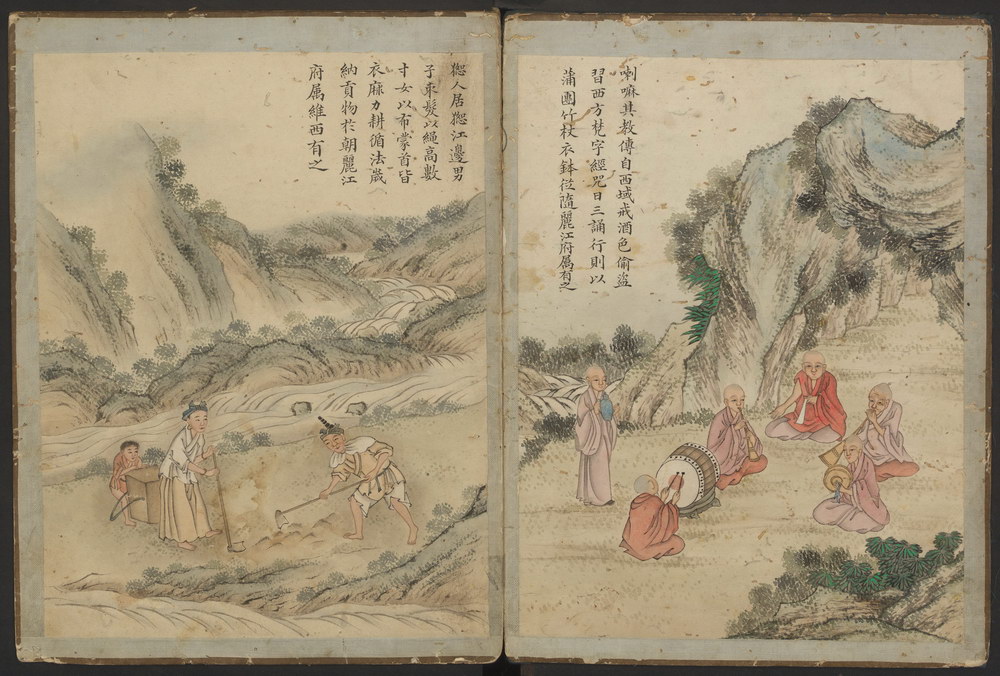 喇嘛其教傳自西域戒酒色偷盜
習西方梵字經咒日三誦行則以
蒲團竹杖衣鉢從隨麗江府属有之
人居江邊男
子束髮以繩高數
寸女以布蒙首皆
衣麻力耕循法歲
納貢物扵朝麗江
府属維西有之